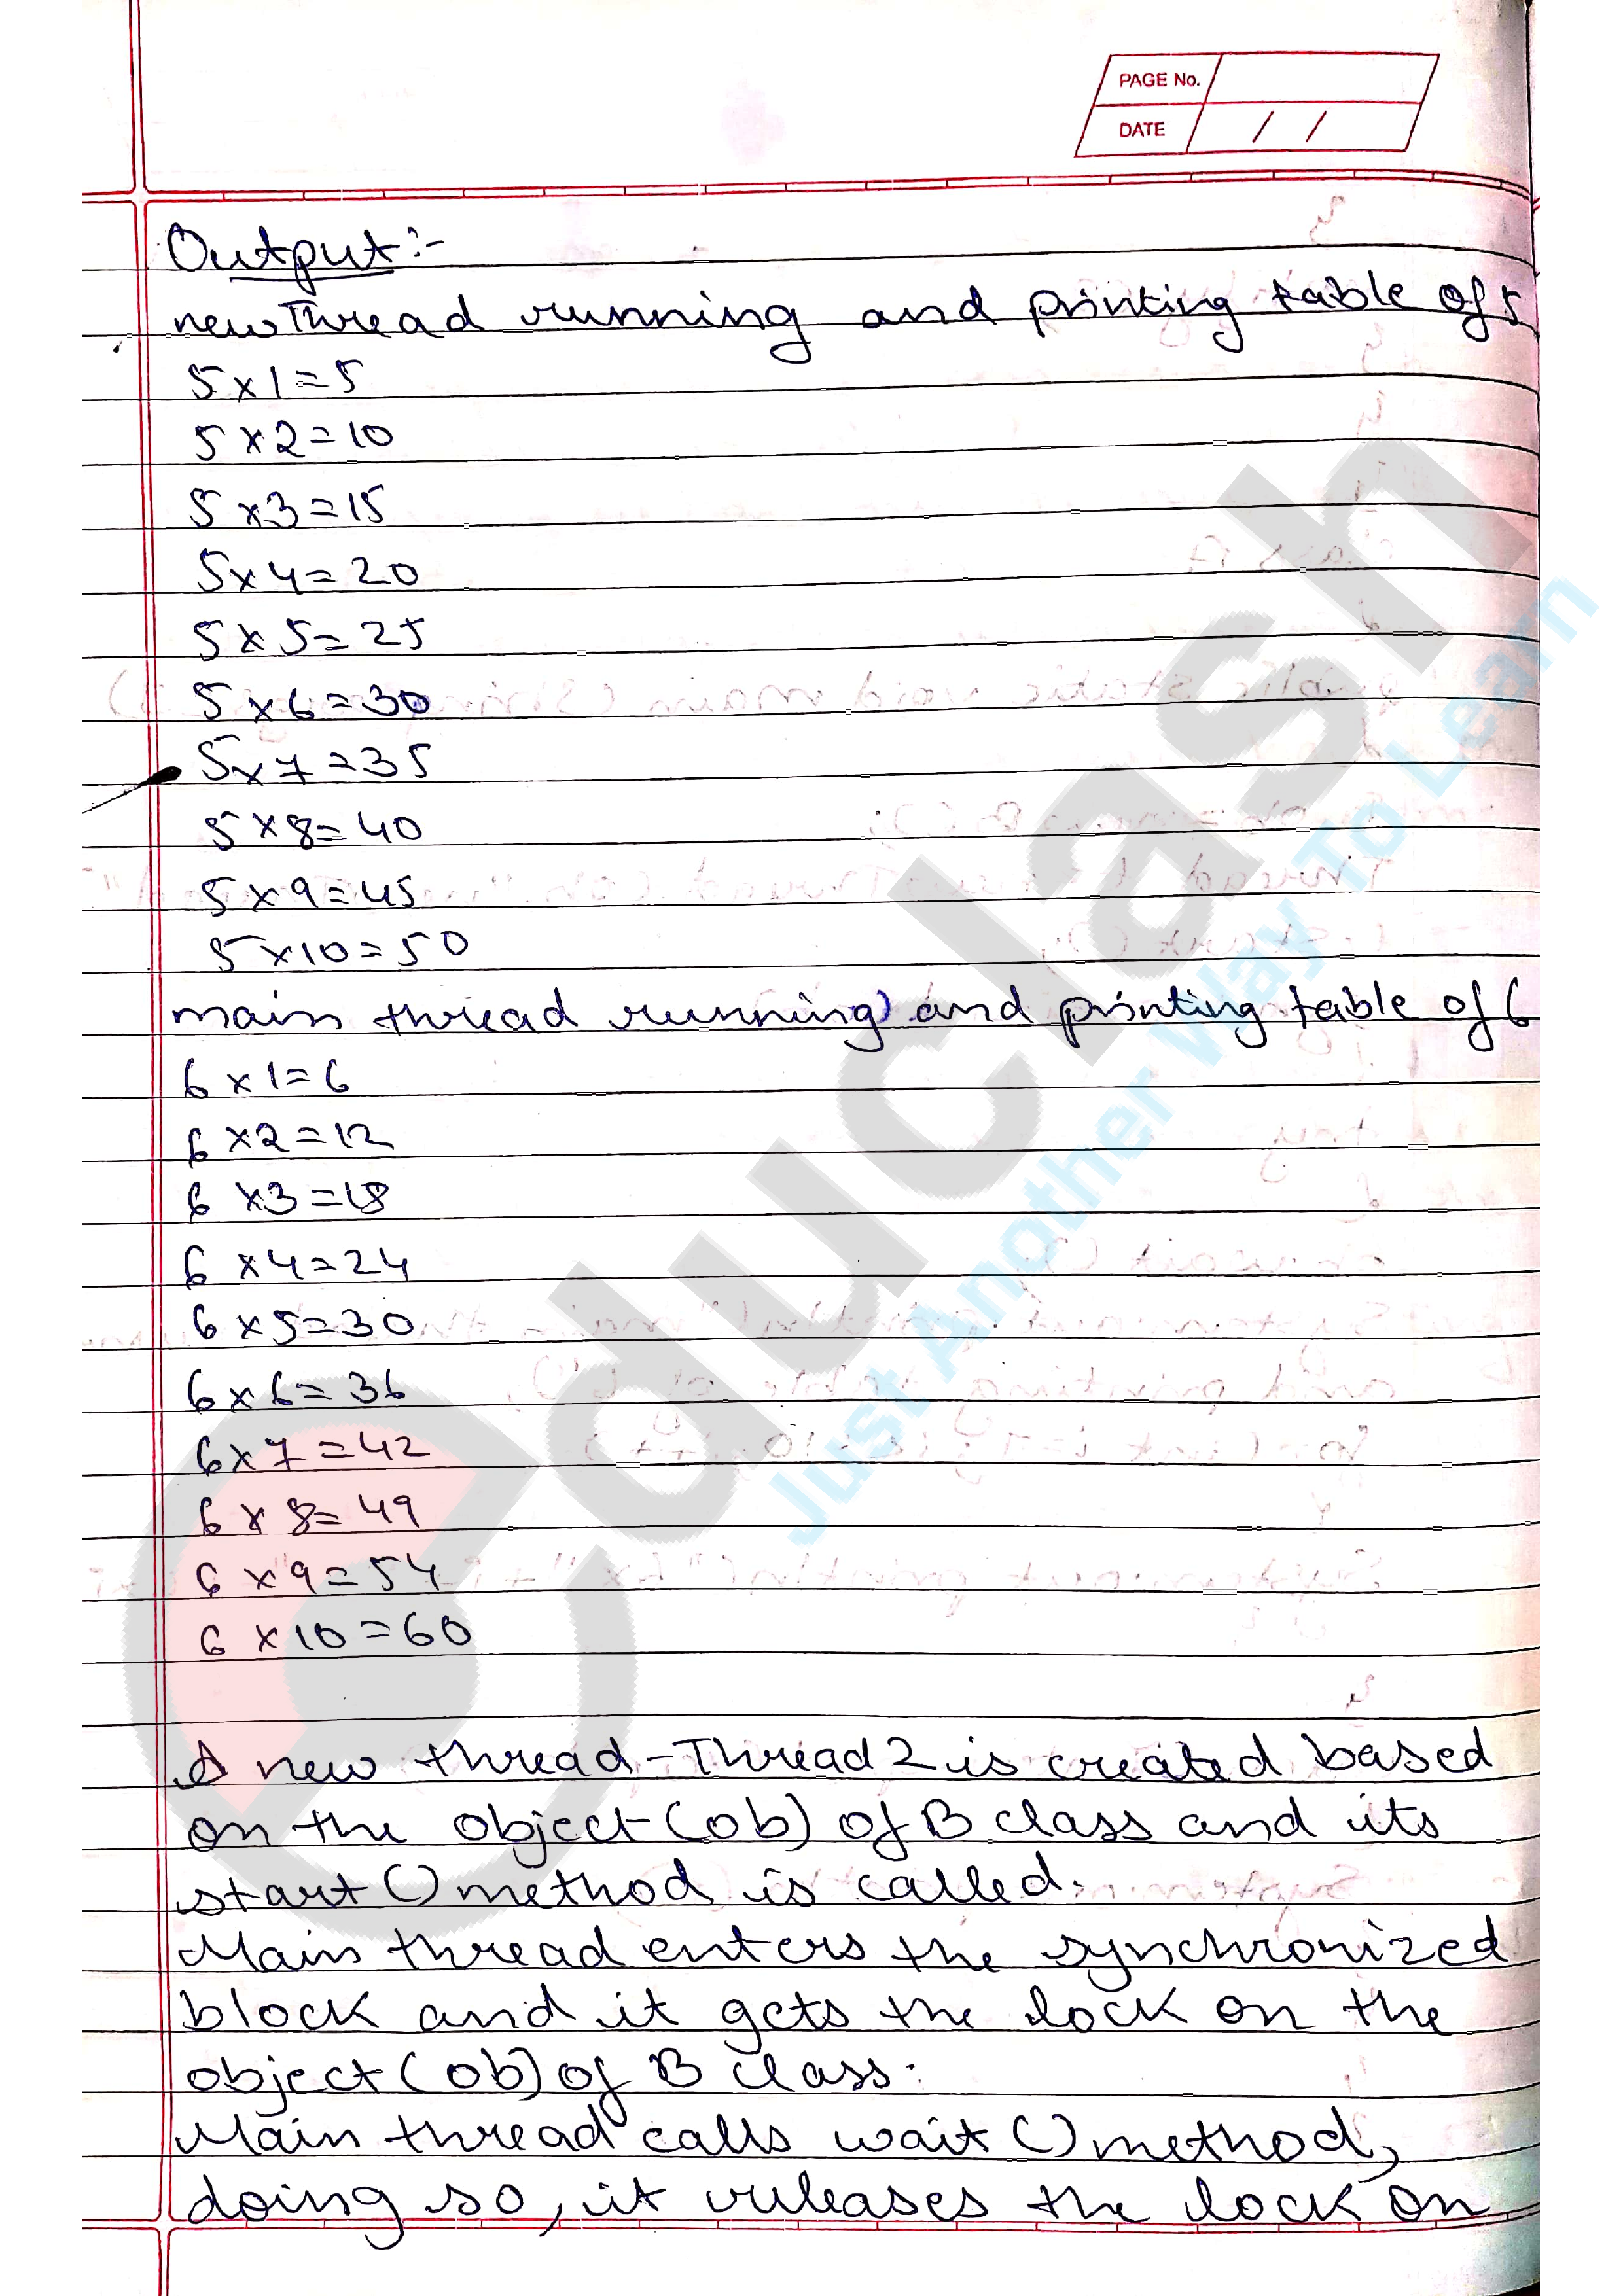 PAGE No.
DATE / /
Output:-
newThread running and printing table of 5
5x1=5
5x2=10
5x3=15
5x4=20
5x5=25
5x6=30
5x7=35
5x8=40
5x9=45
5x10=50
main thread running and printing table of 6
6x1=6
6x2=12
6x3=18
6x4=24
6x5=30
6x6=36
6x7=42
6x8=49
6x9=54
6x10=60
A new thread-Thread2 is created based
on the object (ob) of B class and its
start () method is called.
Main thread enters the synchronized
block and it gets the lock on the
object (ob) of B class.
Main thread calls wait () method,
doing so, it releases the lock on
educlash
Just Another Way To Learn